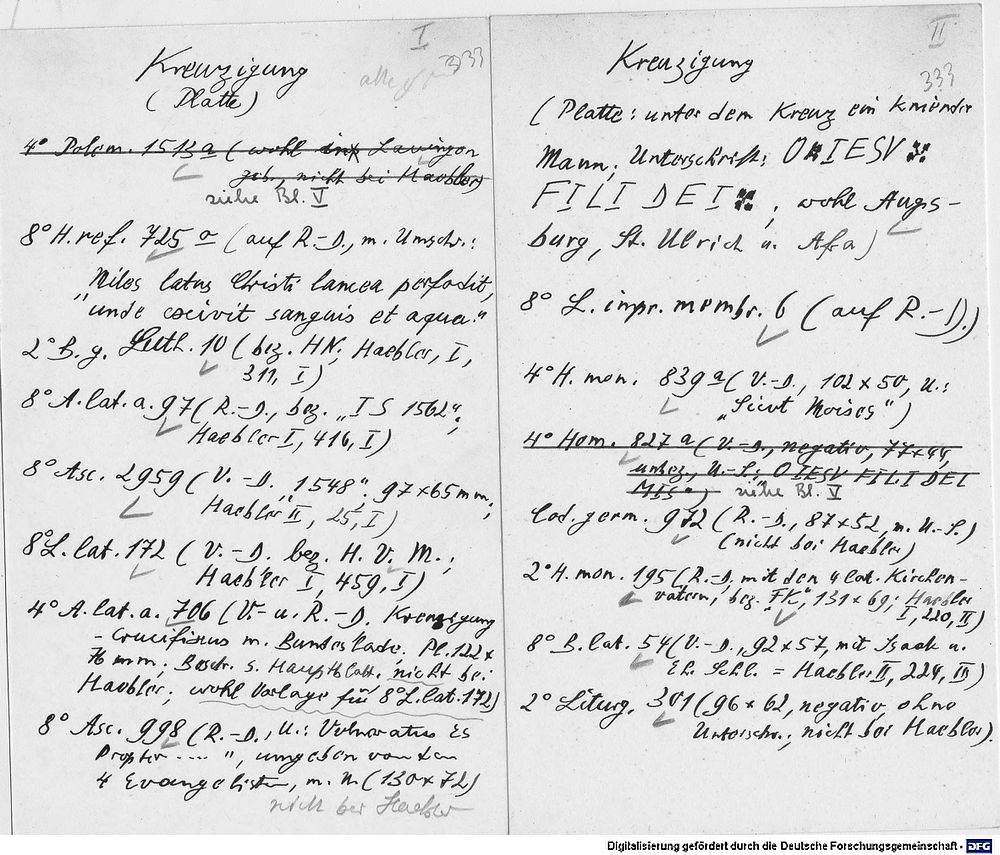 I
333
Kreuzigung
(Platte)
4° Polem. 1513 a (wohl in Lauingen
geb., nicht bei Haebler)
siehe Bl. V
8° H. ref. 725 a (auf R.-D., m. Umschr.:
"Miles latus Christi lancea perfodit,
unde exivit sanguis et aqua."
2° B. g. Luth. 10 (bez. HN; Haebler, I,
311, I)
8° A. lat. a. 97 (R.-D., bez. „IS 1562“;
Haebler I, 416, I)
8° Asc. 2959 (V.-D. „1548“; 97 x 65 mm;
Haebler II, 25, I)
8° L. lat. 172 (V.-D. bez. H. V. M.;
Haebler I, 459, I)
4° A. lat. a. 706 (V.- u. R.-D. Kreuzigung
- Crucifixus m. Bundeslade. Pl. 122 x
76 mm; Beschr. s. Hauptblatt, nicht bei
Haebler; wohl Vorlage für 8° L. lat. 172)
8° Asc. 998 (R.-D., U.: Vulneratus Es
Propter .... ", umgeben von den
4 Evangelisten, m. N (130 x 72)
nicht bei Haebler
II
333
Kreuzigung
(Platte: unter dem Kreuz ein kniender
Mann; Unterschrift: O IESV
FILI DEI, wohl Augs-
burg, St. Ulrich u. Afra)
8° L. impr. membr. 6 (auf R.-D.)
4° H. mon. 839 a (V.-D., 102 x 50, U.:
„Sicut Moises“)
4° Hom. 827 a (V.-D., negativ, 77 x 44,
unbez., U.-S.: O IESV FILI DEI
MIS") siehe Bl. V
Cod. germ. 972 (R.-D., 87 x 52, m. U.-S.)
(nicht bei Haebler)
2° H. mon. 195 (R.-D. mit den 4 lat. Kirchen-
vätern, bez. "FK", 131 x 69; Haebler
I, 220, II)
8° B. lat. 54 (V.-D., 92 x 57, mit Isaak u.
Eh. Schl. = Haebler II, 224, III)
2° Liturg. 301 (96 x 62, negativ ohne
Unterschr.; nicht bei Haebler).
Digitalisierung gefördert durch die Deutsche Forschungsgemeinschaft - DFG